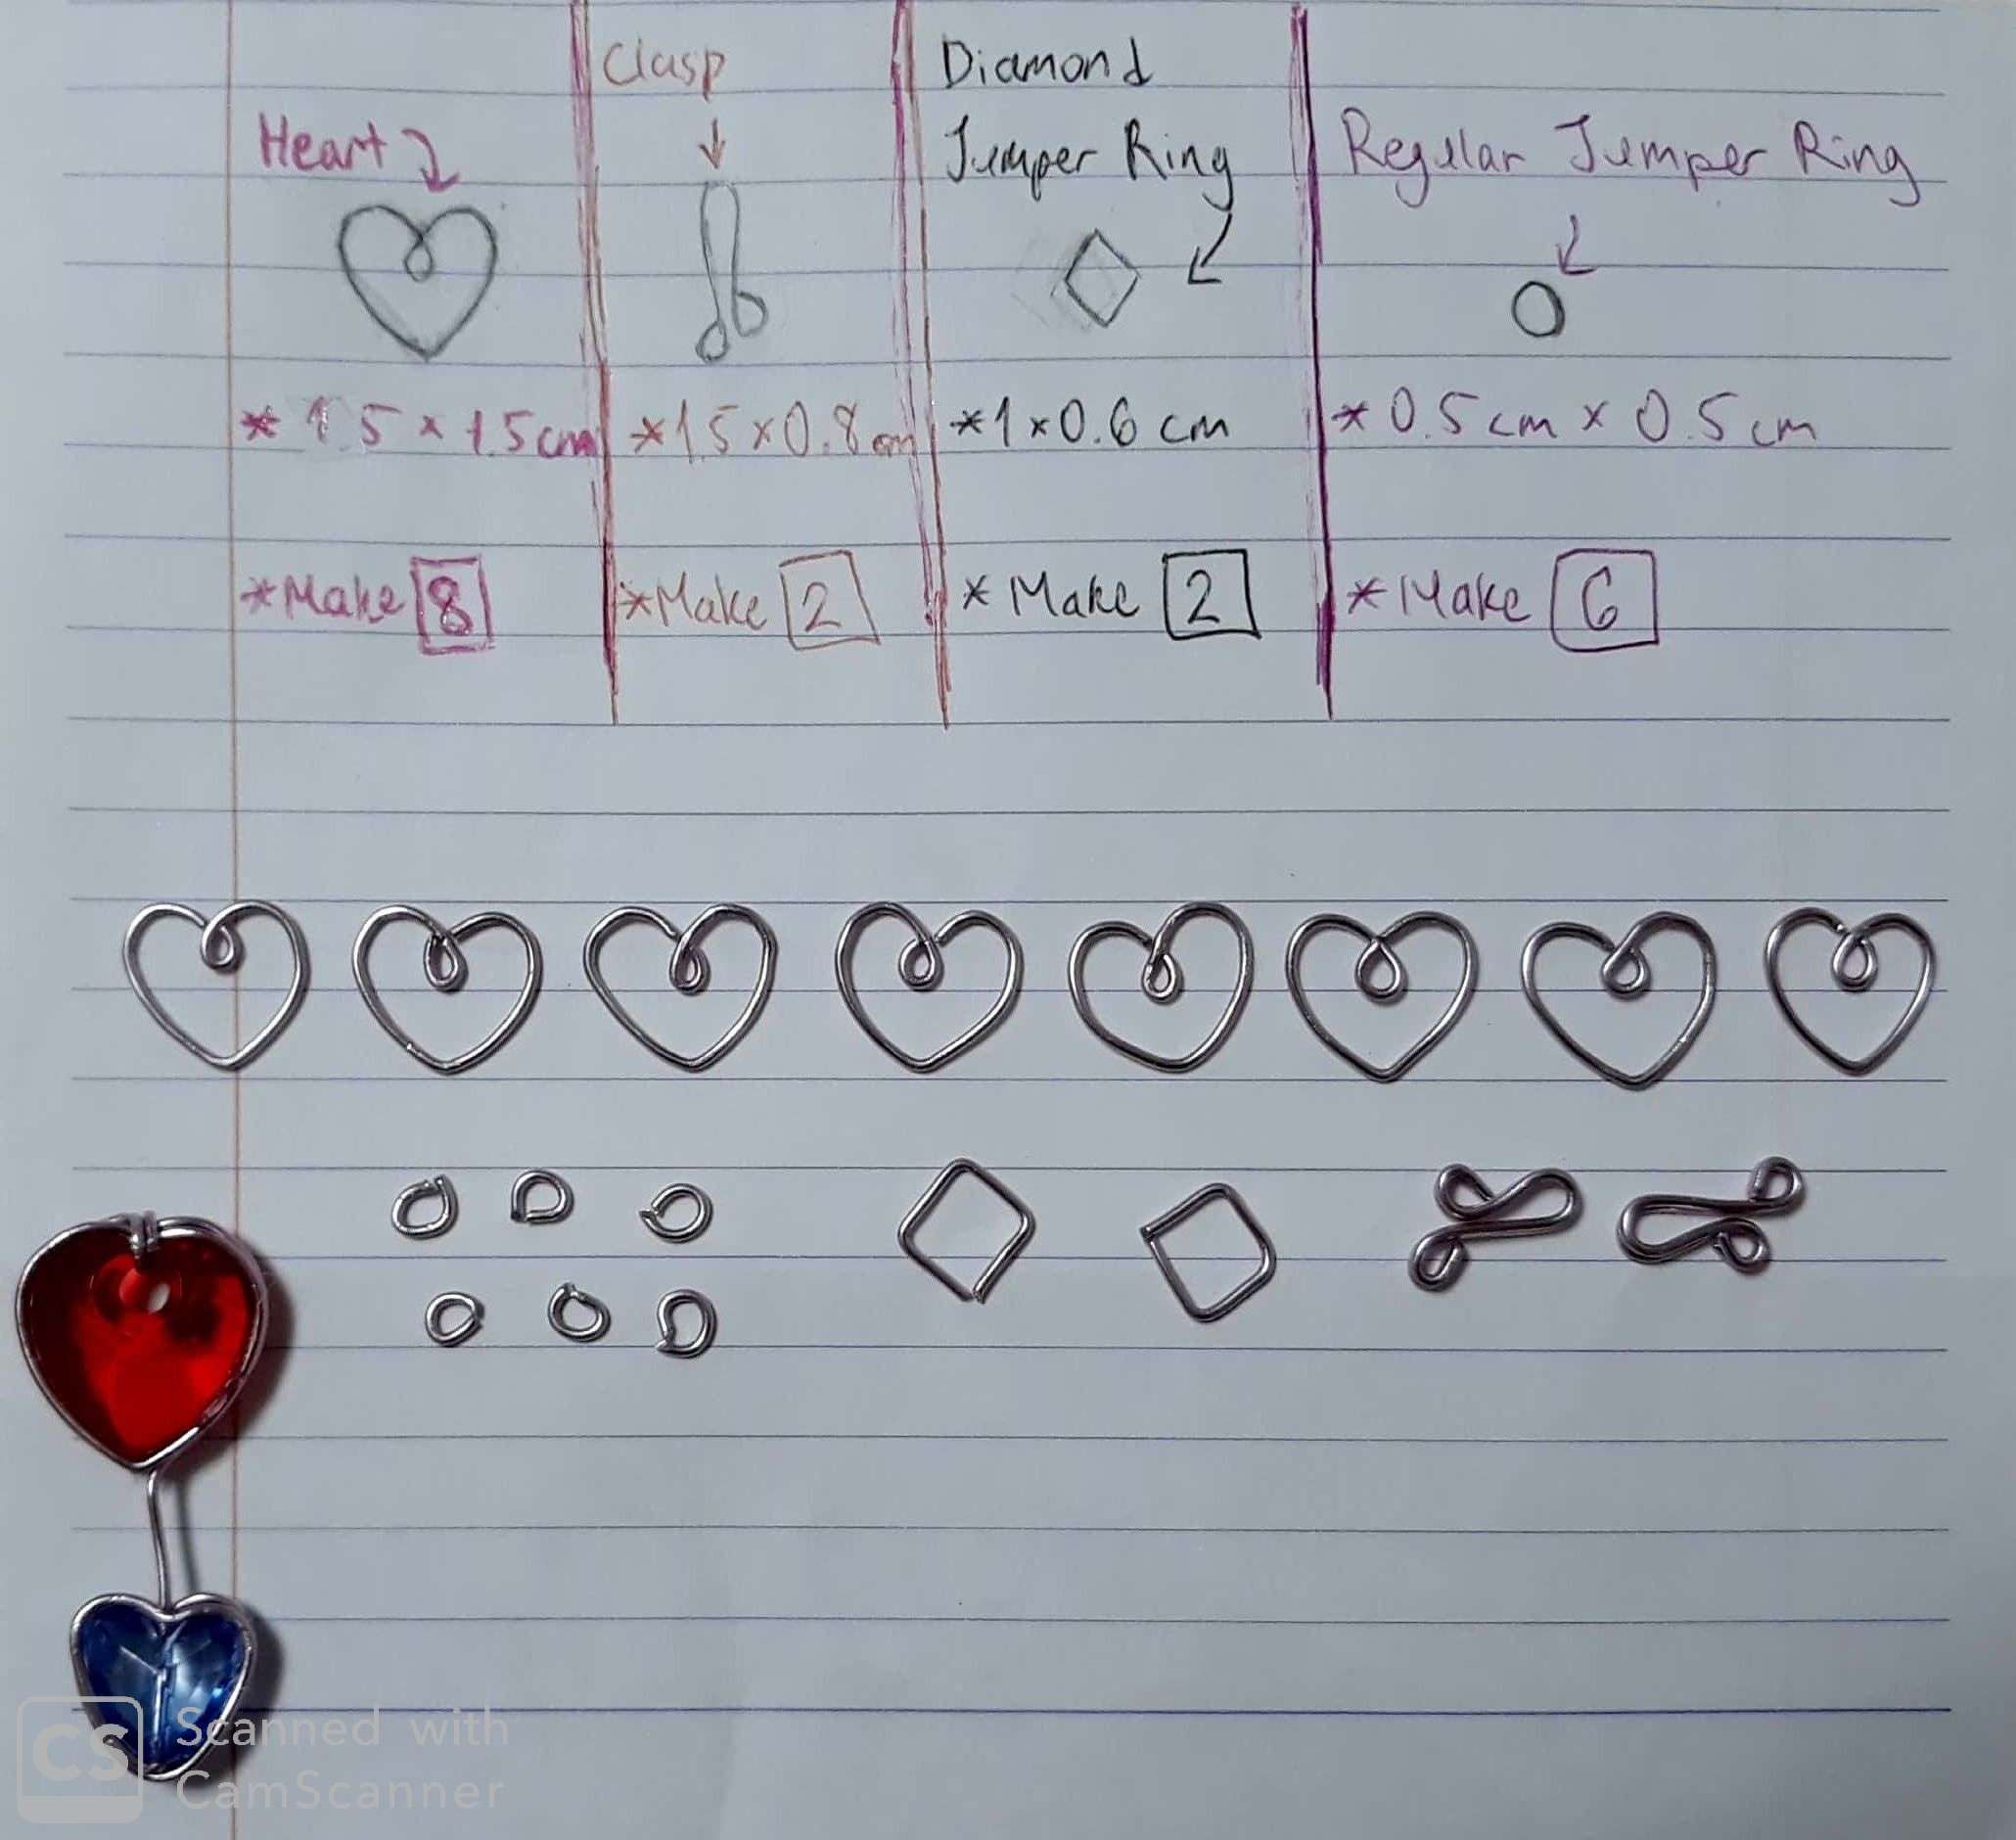 Clasp
Diamond
Heart
Jumper Ring
Regular Jumper Ring
* 1.5 × 1.5 cm
* 1.5 × 0.8 cm
* 1 × 0.6 cm
* 0.5 cm × 0.5 cm
* Make 8
* Make 2
* Make 2
* Make 6
CS
Scanned with
CamScanner